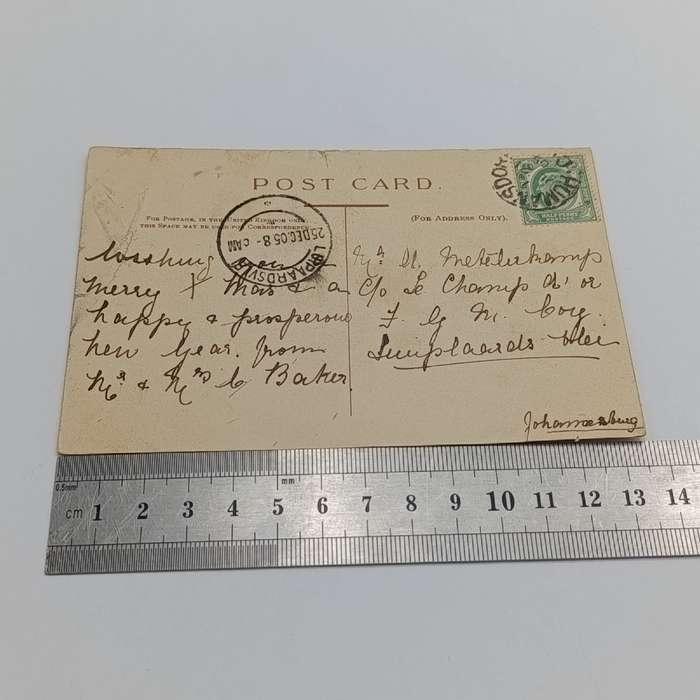 POST CARD.
FOR POSTAGE, IN THE UNITED KINGDOM ONLY,
THIS SPACE MAY BE USED FOR CORRESPONDENCE
(FOR ADDRESS ONLY).
LUIPAARDSVLEI
25 DEC 05 8 - AM
HALF PENNY
Wishing you a
merry X mas & a
happy & prosperous
new year. from
Mr & Mrs C Baker.
Mr A. Metelerkamp
C/o Le Champ d'or
F G M Coy.
Luiplaards Vlei
Johannesburg
0.5mm
mm
cm 1 2 3 4 5 6 7 8 9 10 11 12 13 14